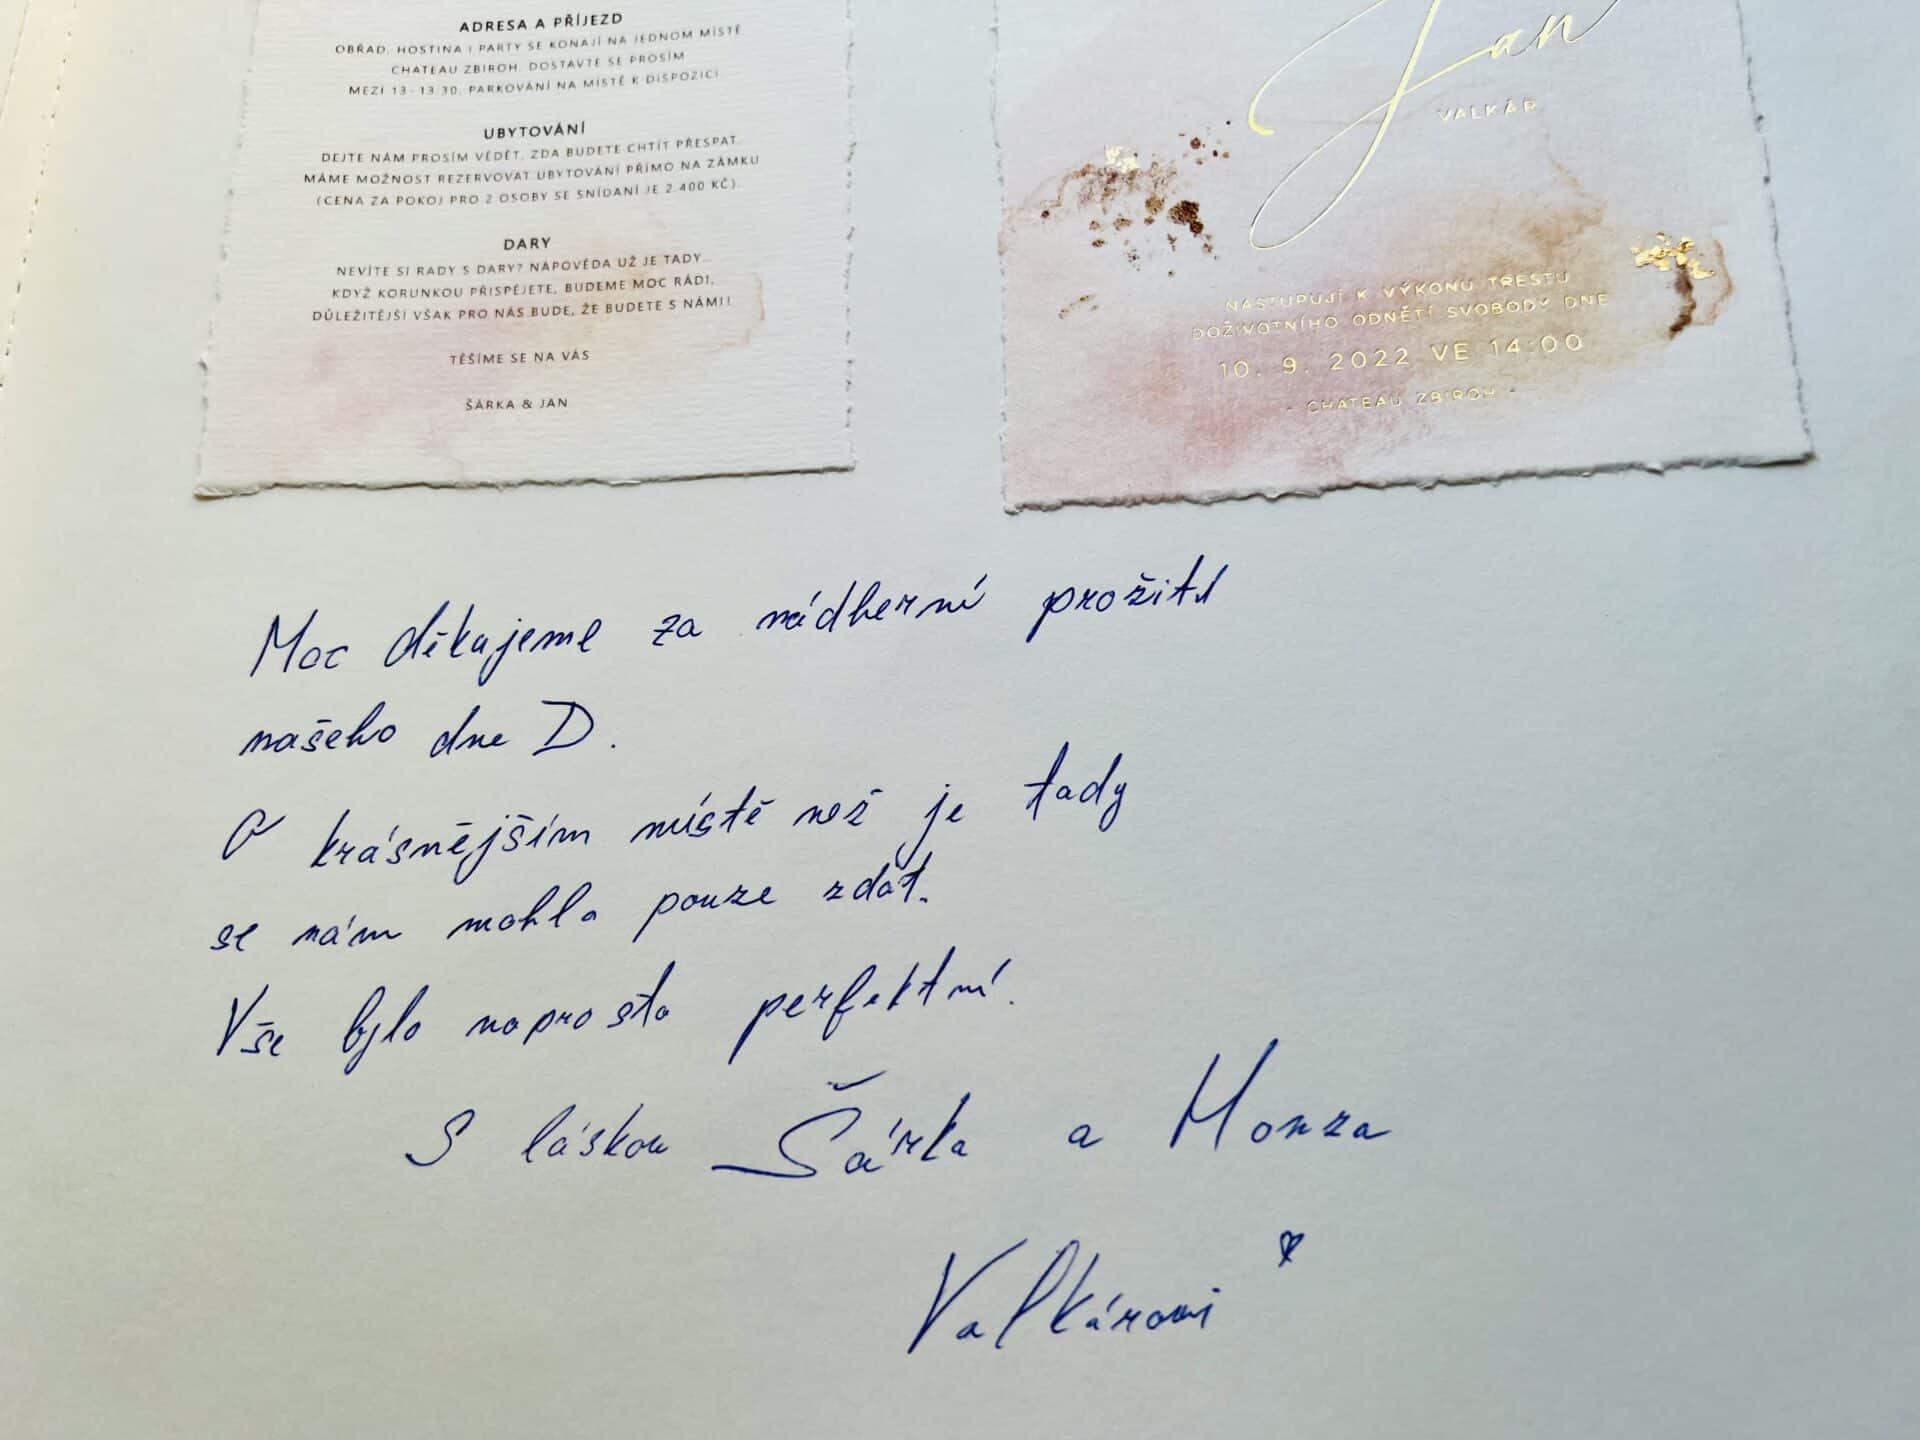 ADRESA A PŘÍJEZD
OBŘAD, HOSTINA I PARTY SE KONAJÍ NA JEDNOM MÍSTĚ
CHATEAU ZBIROH. DOSTAVTE SE PROSÍM
MEZI 13-13:30. PARKOVÁNÍ NA MÍSTĚ K DISPOZICI.
UBYTOVÁNÍ
DEJTE NÁM PROSÍM VĚDĚT, ZDA BUDETE CHTÍT PŘESPAT.
MÁME MOŽNOST REZERVOVAT UBYTOVÁNÍ PŘÍMO NA ZÁMKU
(CENA ZA POKOJ PRO 2 OSOBY SE SNÍDANÍ JE 2.400 KČ).
DARY
NEVÍTE SI RADY S DARY? NÁPOVĚDA UŽ JE TADY...
KDYŽ KORUNKOU PŘISPĚJETE, BUDEME MOC RÁDI,
DŮLEŽITĚJŠÍ VŠAK PRO NÁS BUDE, ŽE BUDETE S NÁMI!
TĚŠÍME SE NA VÁS
ŠÁRKA & JAN
Jan
VALKÁR
NASTUPUJÍ K VÝKONU TRESTU
DOŽIVOTNÍHO ODNĚTÍ SVOBODY DNE
10. 9. 2022 VE 14:00
- CHATEAU ZBIROH -
Moc děkujeme za nádherní prožití
našeho dne D.
O krásnějším místě než je tady
se nám mohlo pouze zdát.
Vše bylo naprosto perfektní.
S láskou Šárka a Honza
Valkárovi